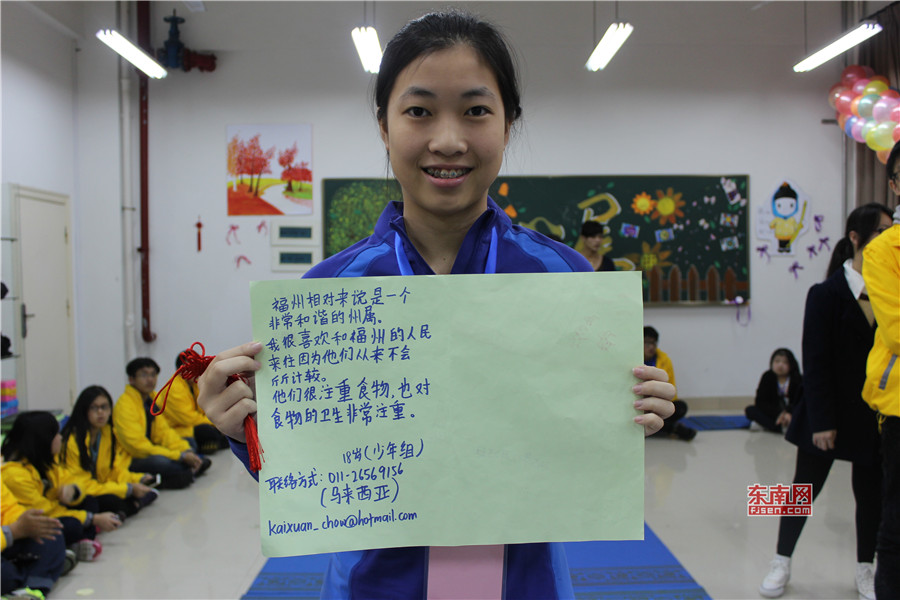 福州相对来说是一个
非常和谐的州属。
我很喜欢和福州的人民
来往因为他们从来不会
斤斤计较。
他们很注重食物，也对
食物的卫生非常注重。
18岁(少年组)
联络方式：011-26569156
(马来西亚)
kaixuan_chow@hotmail.com
东南网
FJSEN.COM